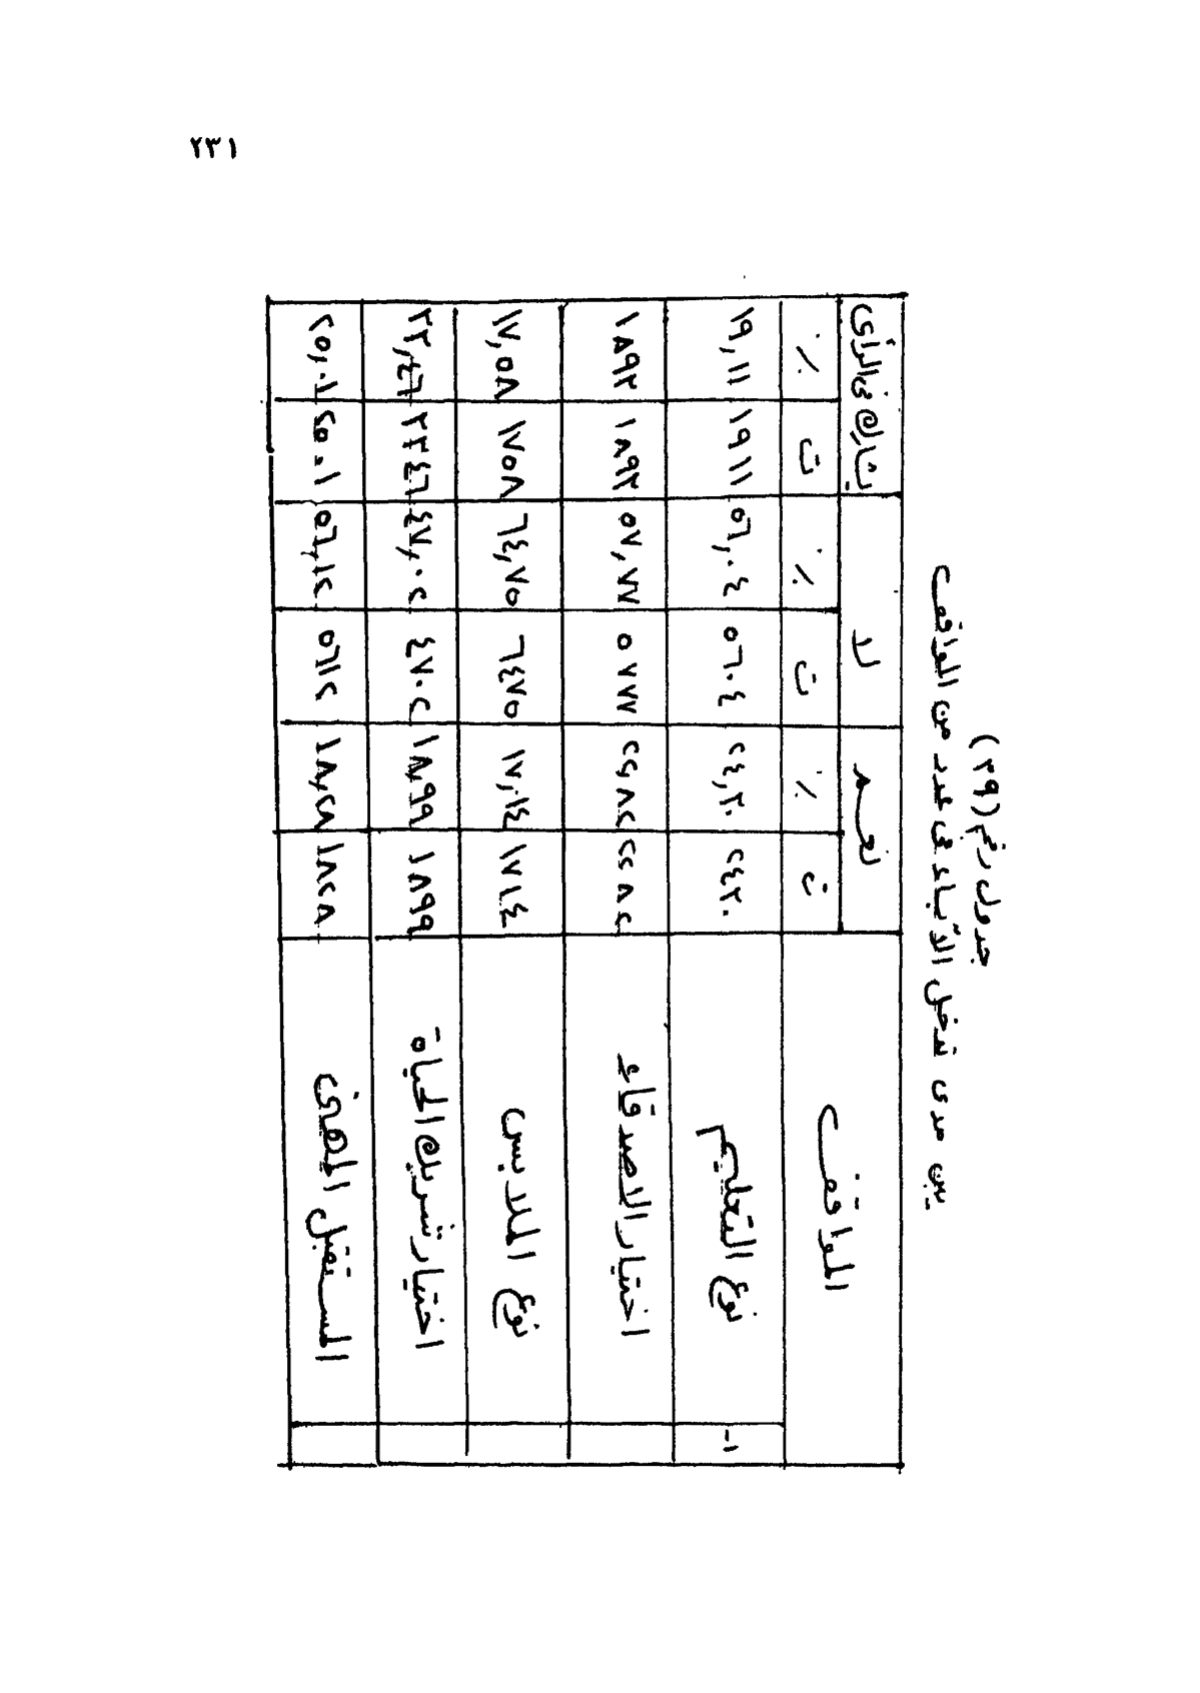 ٢٣١
جدول رقم (٣٩)
يبين مدى تدخل الآباء في عدد من المواقف
المواقف نعم لا يشارك في الرأى
ت ٪ ت ٪ ت ٪
١- نوع التعليم ٢٤٣٠ ٢٤,٣٠ ٥٦٠٤ ٥٦,٠٤ ١٩١١ ١٩,١١
اختيار الاصدقاء ٢٢٨٢ ٢٢,٨٢ ٥٧٧٧ ٥٧,٧٧ ١٨٩٣ ١٨,٩٣
نوع الملابس ١٧١٤ ١٧,١٤ ٦٤٧٥ ٦٤,٧٥ ١٧٥٨ ١٧,٥٨
اختيار شريك الحياة ١٨٩٩ ١٨,٩٩ ٤٧٠٢ ٤٧,٠٢ ٣٣٤٦ ٣٣,٤٦
المستقبل المهنى ١٨٢٨ ١٨,٢٨ ٥٦١٢ ٥٦,١٢ ٢٥٠١ ٢٥,٠١